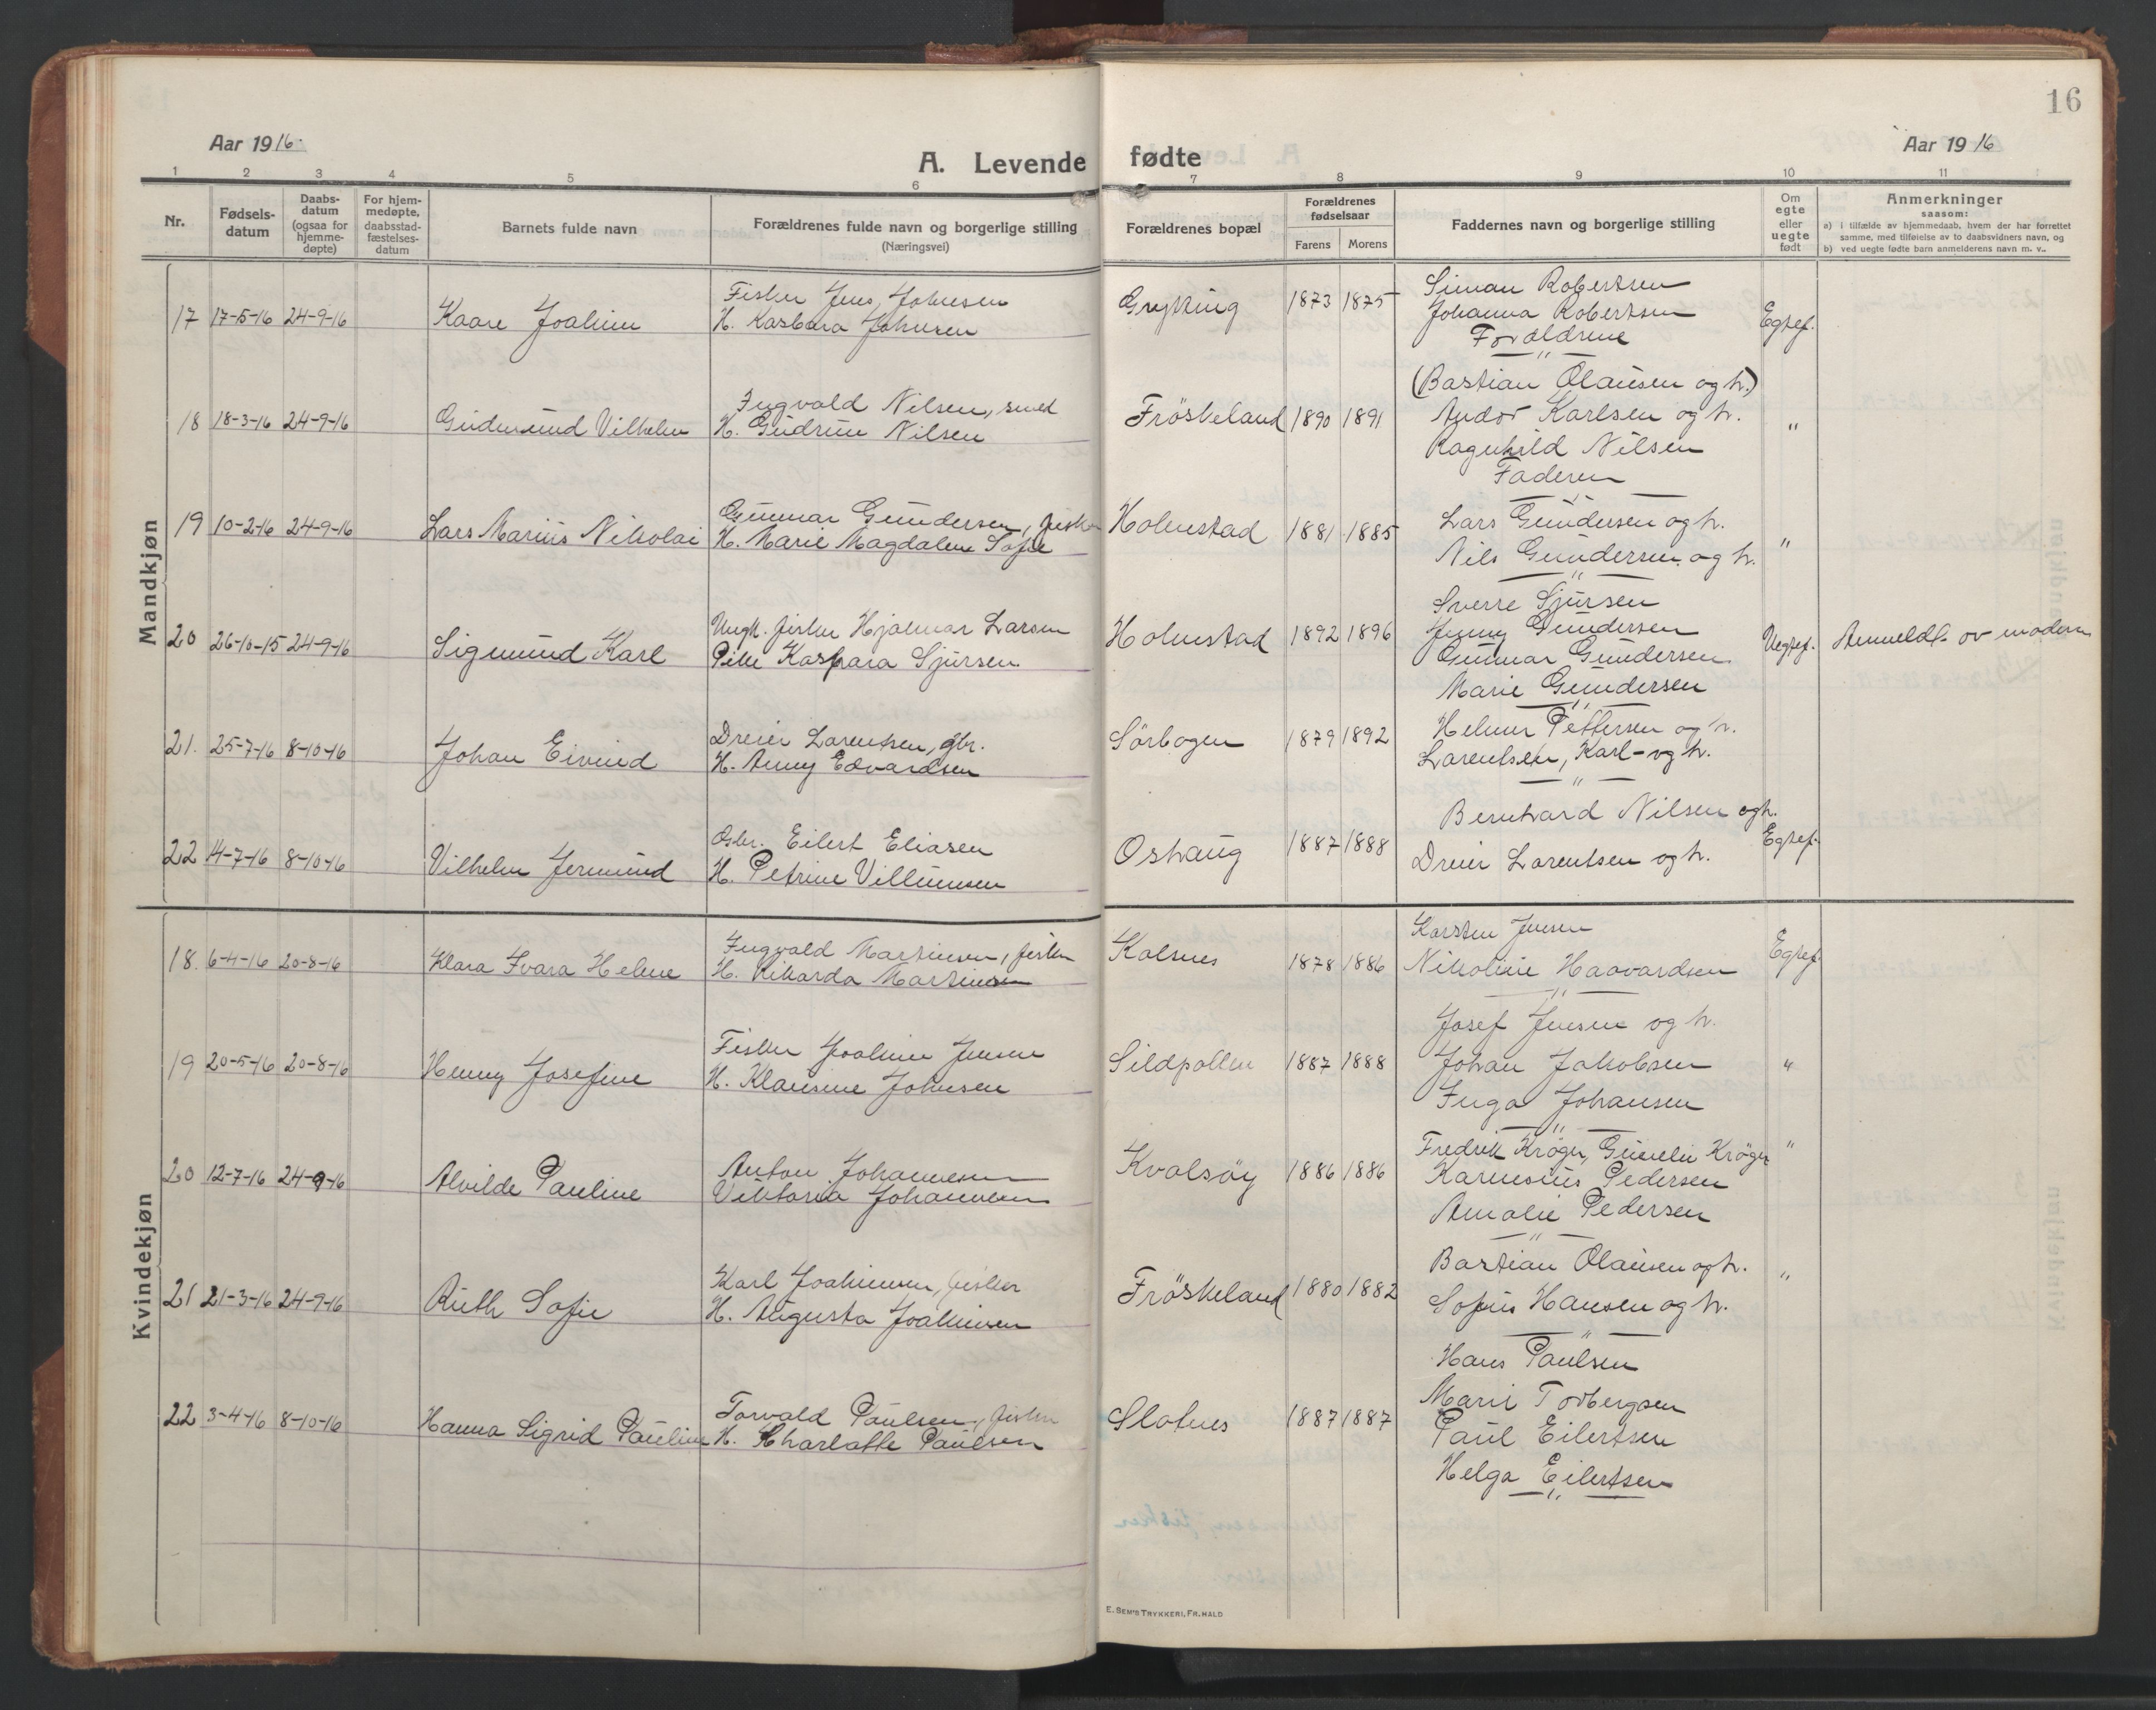 16
Aar 1916.
A. Levende fødte
Aar 1916
1 2 3 4 5 6 7 8 9 10 11
Nr.
Fødsels-datum
Daabs-datum (ogsaa for hjemme-døpte)
For hjem-medøpte, daabsstad-fæstelses-datum
Barnets fulde navn
Forældrenes fulde navn og borgerlige stilling
(Næringsvei)
Forældrenes bopæl
Forældrenes fødselsaar
Farens Morens
Faddernes navn og borgerlige stilling
Om egte eller uegte født
Anmerkninger
saasom:
a) i tilfælde av hjemmedaab, hvem der har forrettet samme, med tilføielse av to daabsvidners navn, og
b) ved uegte fødte barn anmelderens navn m. v..
Mandkjøn
17 17-5-16 24-9-16 Kaare Joakim
Fisker Jens Johnsen
H. Kasbara Johnsen
Grytting 1873 1875
Simon Robertsen
Johanna Robertsen
Forældrene
Egtef.
18 18-3-16 24-9-16 Gudmund Vilhelm
Ingvald Nilsen, smed
H. Gudrun Nilsen
Fröskeland 1890 1891
(Bastian Olausen og h.)
Andor Karlsen og h.
Ragnhild Nilsen
Faderen
"
19 10-2-16 24-9-16 Lars Marius Nikolai
Gunnar Gundersen, fisker
H. Marie Magdalene Sofie
Holmstad 1881 1885
Lars Gundersen og h.
Nils Gundersen og h.
"
20 26-10-15 24-9-16 Sigmund Karl
Ungk. fisker Hjalmar Larsen
Pike Kaspara Sjursen
Holmstad 1892 1896
Sverre Sjursen
Jenny Gundersen
Gunnar Gundersen
Marie Gundersen
Uegtef.
Anmeldt av moderen
21. 25-7-16 8-10-16 Johan Eivind
Dreier Larentsen, gbr.
H. Anny Edvardsen
Sörbogen 1879 1892
Helmer Pettersen og h.
Larentsen, Karl - og h.
22 14-7-16 8-10-16 Vilhelm Jermund
Gbr. Eilert Eliasen
H. Petrine Villumsen
Oshaug 1887 1888
Bernhard Nilsen og h.
Dreier Larentsen og h.
Egtef.
Kvindekjøn
18. 6-4-16 20-8-16 Klara Ivara Helene
Ingvald Martinsen, fisker
H. Rikarda Martinsen
Kalsnes 1878 1886
Karsten Jensen
Nikoline Haavardsen
Egtef.
19 20-5-16 20-8-16 Henny Josefine
Fisker Joakim Jensen
H. Klausine Johnsen
Sildpollen 1887 1888
Josef Jensen og h.
Johan Jakobsen
Inga Johansen
"
20 12-7-16 24-9-16 Alvilde Pauline
Anton Johannesen
Viktoria Johannesen
Kvalsöy 1886 1886
Fredrik Kröger, Kröger
Karnesius Pedersen
Amalie Pedersen
"
21 21-3-16 24-9-16 Ruth Sofie
Karl Joakimsen, fisker
H. Augusta Joakimsen
Fröskeland 1880 1882
Bastian Olausen og h.
Sofus Hansen og h.
"
22 3-4-16 8-10-16 Hanna Sigrid Pauline
Torvald Paulsen, fisker
H. Charlotte Paulsen
Slotnes 1887 1887
Hans Paulsen
Marie Torbergsen
Paul Eilertsen
Helga Eilertsen
E. SEM'S TRYKKERI, FR.HALD